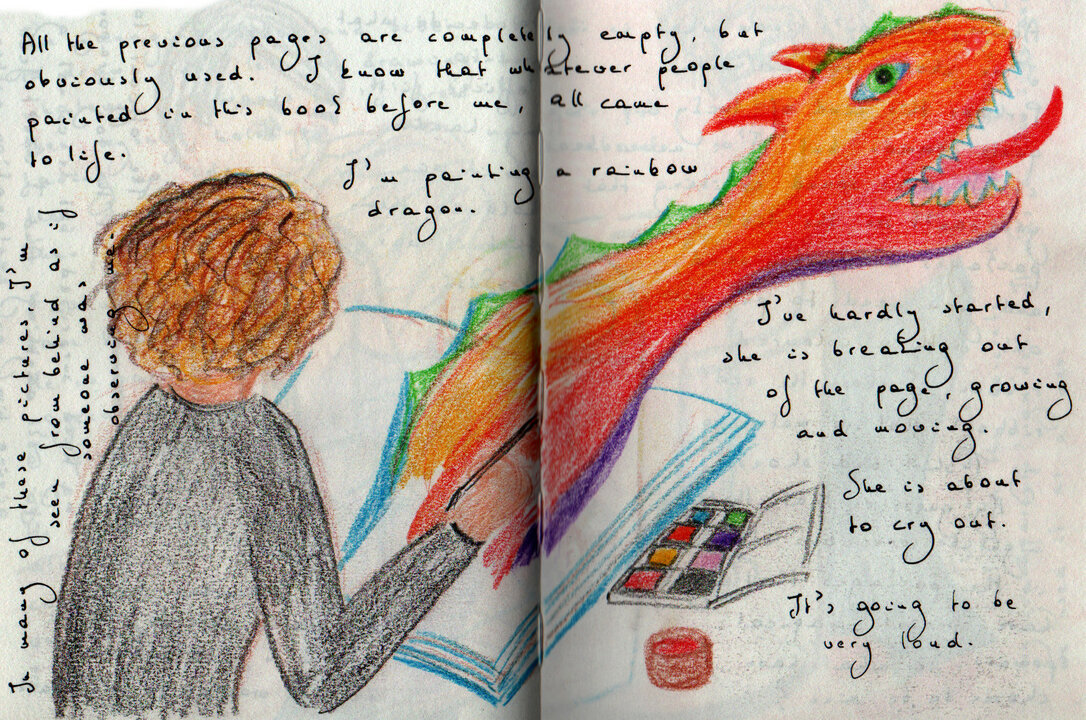 All the previous pages are completely empty, but
obviously used. I know that whatever people
painted in this book before me, all came
to life.
I'm painting a rainbow
dragon.
In many of these pictures, I'm
seen from behind as if
someone was
observing me.
I've hardly started,
she is breaking out
of the page, growing
and moving.
She is about
to cry out.
It's going to be
very loud.